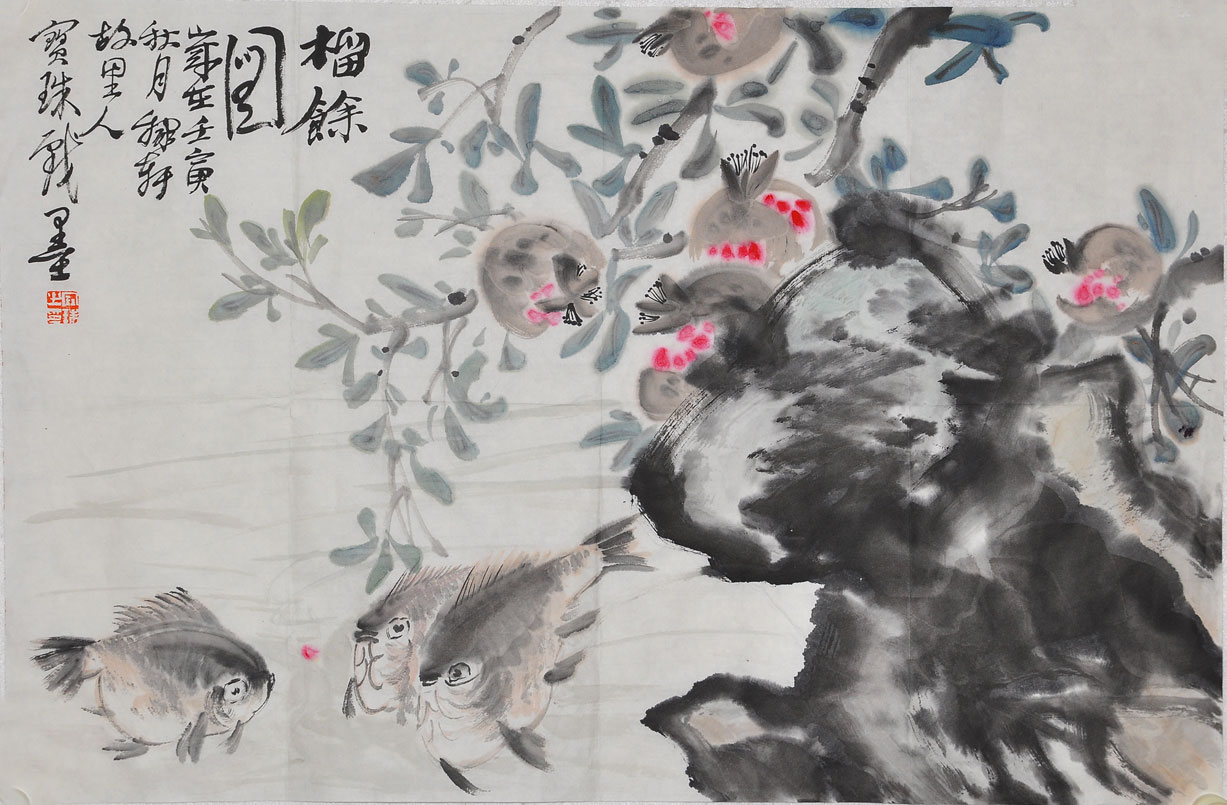 榴餘
圖
歲在壬寅
秋月稼軒
故里人
寶珠戲墨